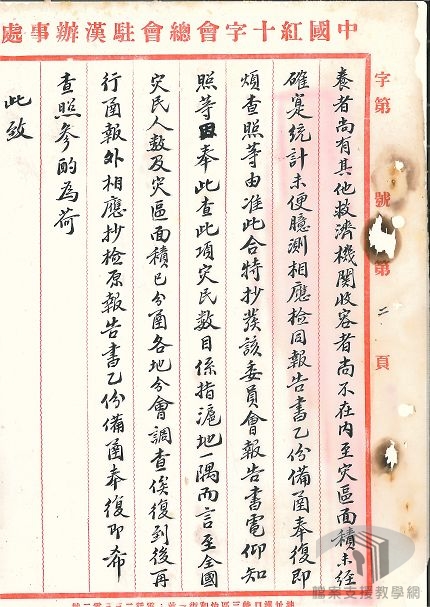 中國紅十字會總會駐漢辦事處
字第 號第二頁
養者尚有其他救濟機關收容者尚不在內至災區面積未經
確定統計未便臆測相應檢同報告書乙份備函奉復即
煩查照等由准此合特抄發該委員會報告書電仰知
照等因奉此查此項災民數目係指滬地一隅而言至全國
災民人數及災區面積已分函各地分會調查俟復到後再
行函報外相應抄檢原報告書乙份備函奉復即希
查照參酌為荷
此致
檔案支援教學網